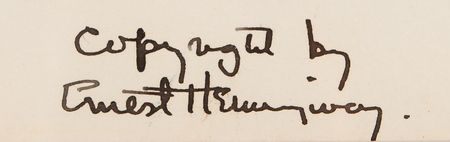 Copyright by
Ernest Hemingway.